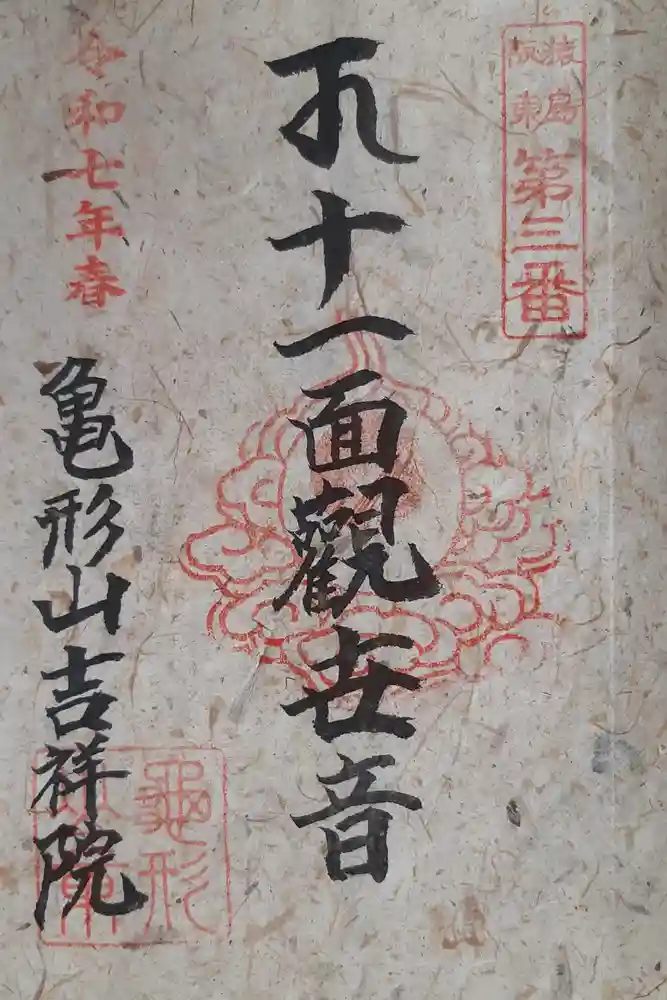 猿島
阪東
第三番
十一面觀世音
令和七年春
亀形山吉祥院
龜形